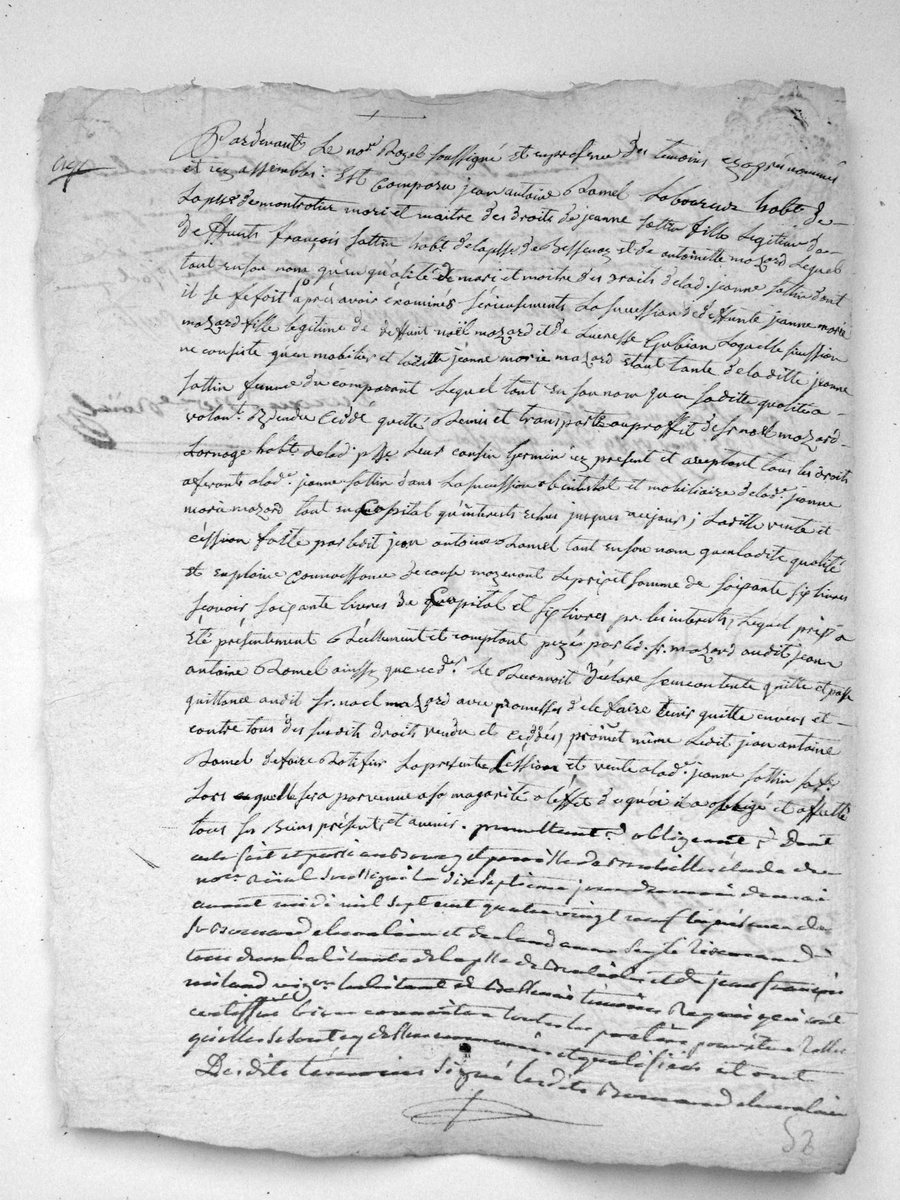 Pardevant Le nore Royal soussigné et en presence des temoins cy après nommés
et icy assemblés : Est comparu jean antoine Ramel Laboureur habt de
La psse de montrotier mari et maitre des droits de jeanne fattin fille Legitime de
deffunts françois fattin habt de la psse de Bessenay et de antoinette mazard Lequel
tant en son nom qu'en qualité de mari et maitre des droits de lad. jeanne fattin dont
il se fefoit après avoir éxaminés serieusements La succession de deffunte jeanne marie
mazard fille legitime de deffunt noël mazard et de Lucresse Gubian Laquelle succession
ne consiste qu'en mobilier et laditte jeanne marie mazard etant tante de laditte jeanne
fattin femme du comparant Lequel tant en son nom qu'en saditte qualité a
volont. vendu cédde quitté Remis et transporté au proffit de sr noel mazard
habt de lad. psse Leur cousin Germain icy présent et acceptant tous les droits
aferants a lad. jeanne fattin dans La succession ab intestat et mobiliaire de lad. jeanne
marie mazard tant en Capital qu'interests echus jusques au jour ; Laditte vente et
céssion faitte par ledit jean antoine Ramel tant en son nom qu'en ladite qualité
et en plaine connoissance de cause moyenant Le prix et somme de soixante six livres
sçavoir soixante livres de Capital et six livres pr les interests, Lequel prix a
été présentement Réellement et comptant payé par led. sr. mazard audit jean
antoine Ramel ainssy que ced. Le Reconnoit déclare sen contente quitte et passe
quittance audit sr. noel mazard avec promesses de le faire tenir quitte envers et
contre tous des susdit droits vendu et céddés, promet même Ledit jean antoine
Ramel de faire Ratifier La présente Céssion et vente a lad. jeanne fattin sa fe.
Lors quelle sera parvenue a sa magorité a l'effet de quoi il a obligé et affecté
tous ses Biens présents et avenir. promettant &amp; obligeant &amp; Dont
acte fait et passé au Bourg et paroisse de étude du
nore Royal soussigné Le dix septieme jour de mai
avant midi mil sept cent quatre vingt neuf En présence de
sr Bernard chevalier et de
tous deux habitants de la psse de et de jean françois
habitant de Bessenay témoins Requis qui ont
certiffié bien connoitre toutes les parties
qu'elles se sont cy dessus et qualifiées et ont
Desdits témoins signé lesdits Bernard chevalier
52